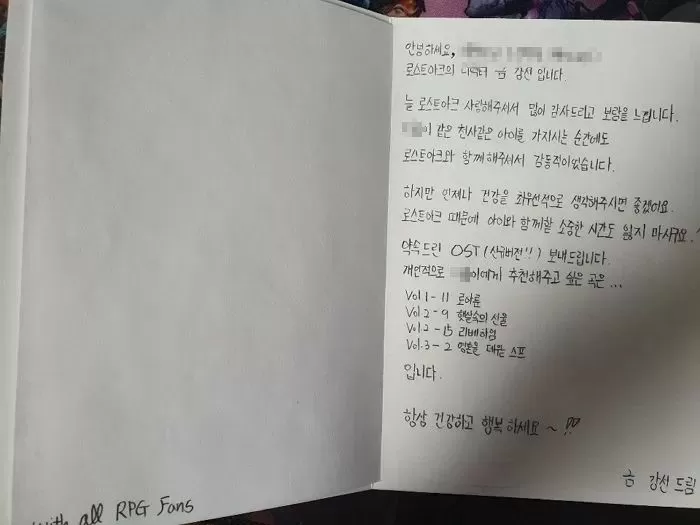 안녕하세요,
로스트아크의 디렉터 금 강선 입니다.
늘 로스트아크 사랑해주셔서 많이 감사드리고 보람을 느낍니다.
이 같은 천사같은 아이를 가지시는 순간에도
로스트아크와 함께 해주셔서 감동적이었습니다.
하지만 언제나 건강을 최우선적으로 생각해주시면 좋겠어요.
로스트아크 때문에 아이와 함께할 소중한 시간도 잃지 마시구요.
약속드린 OST (신규버전!!) 보내드립니다.
개인적으로 이에게 추천해주고 싶은 곡은...
Vol 1-11 로아룬
Vol 2-9 햇살속의 선율
Vol.2-15 리베하임
Vol.3-2 영혼을 데우는 스프
입니다.
항상 건강하고 행복하세요~ !!
금 강선 드림
with all RPG Fans